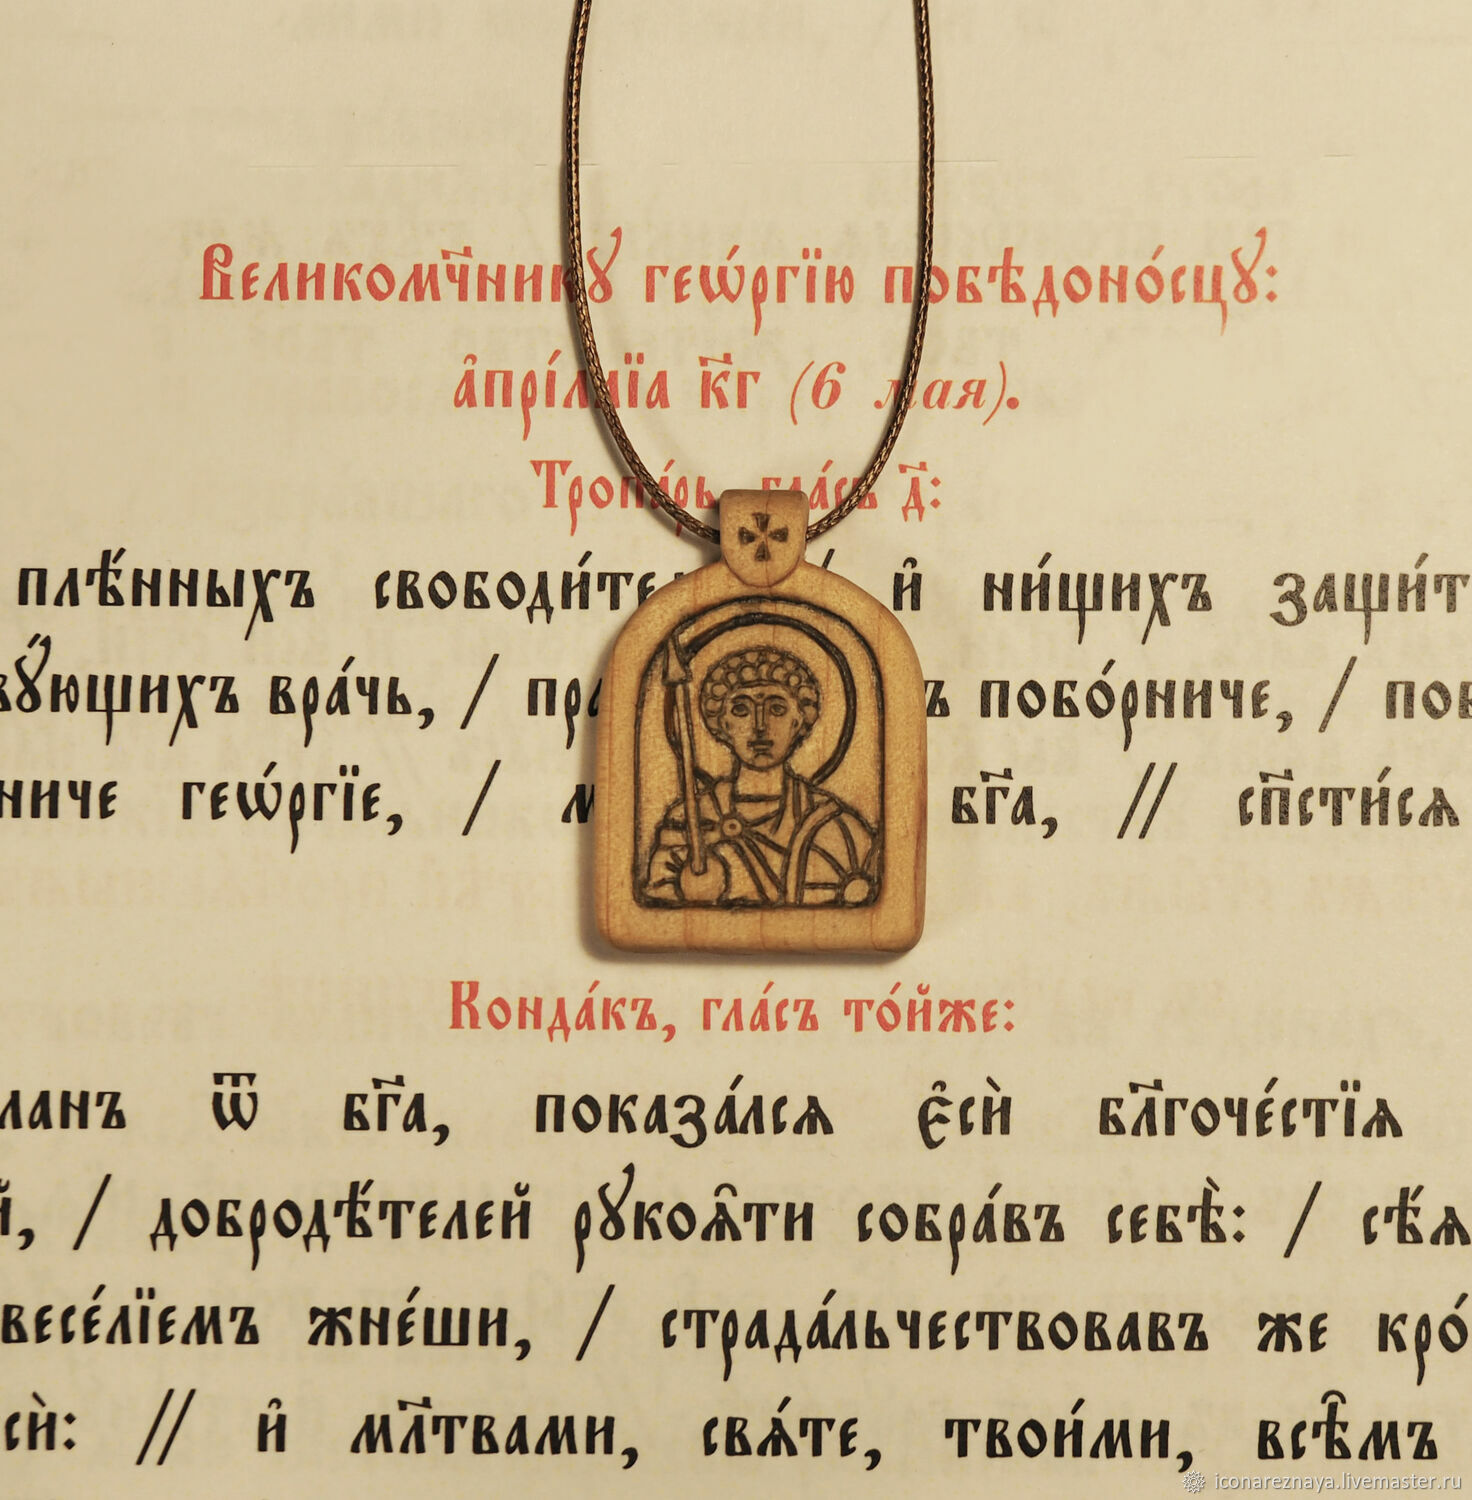 Великомч҃нику геѡ́ргїю побѣдоно́сцу:
а҆прі́ллїа к҃г (6 мая).
Тропа́рь, гла́съ д҃:
плѣ́нныхъ свободи́те и҆ ни́щихъ защи́т
вꙋ́ющихъ вра́чь, / пра ъ побо́рниче, / поб
ниче геѡ́ргїе, / м бг҃а, // сп҃сти́сѧ
ланъ ѿ бг҃а, показа́лсѧ є҆сѝ бл҃гоче́стїѧ
й, / добродѣ́телей рꙋкоѧ̑ти собра́въ себѣ̀: / сѣ́ѧ
Конда́къ, гла́съ то́йже:
весе́лїемъ жне́ши, / страда́льчествовавъ же кро́
сѝ: // и҆ мл҃твами, свѧ́те, твои́ми, всѣ̑мъ
iconareznaya.livemaster.ru